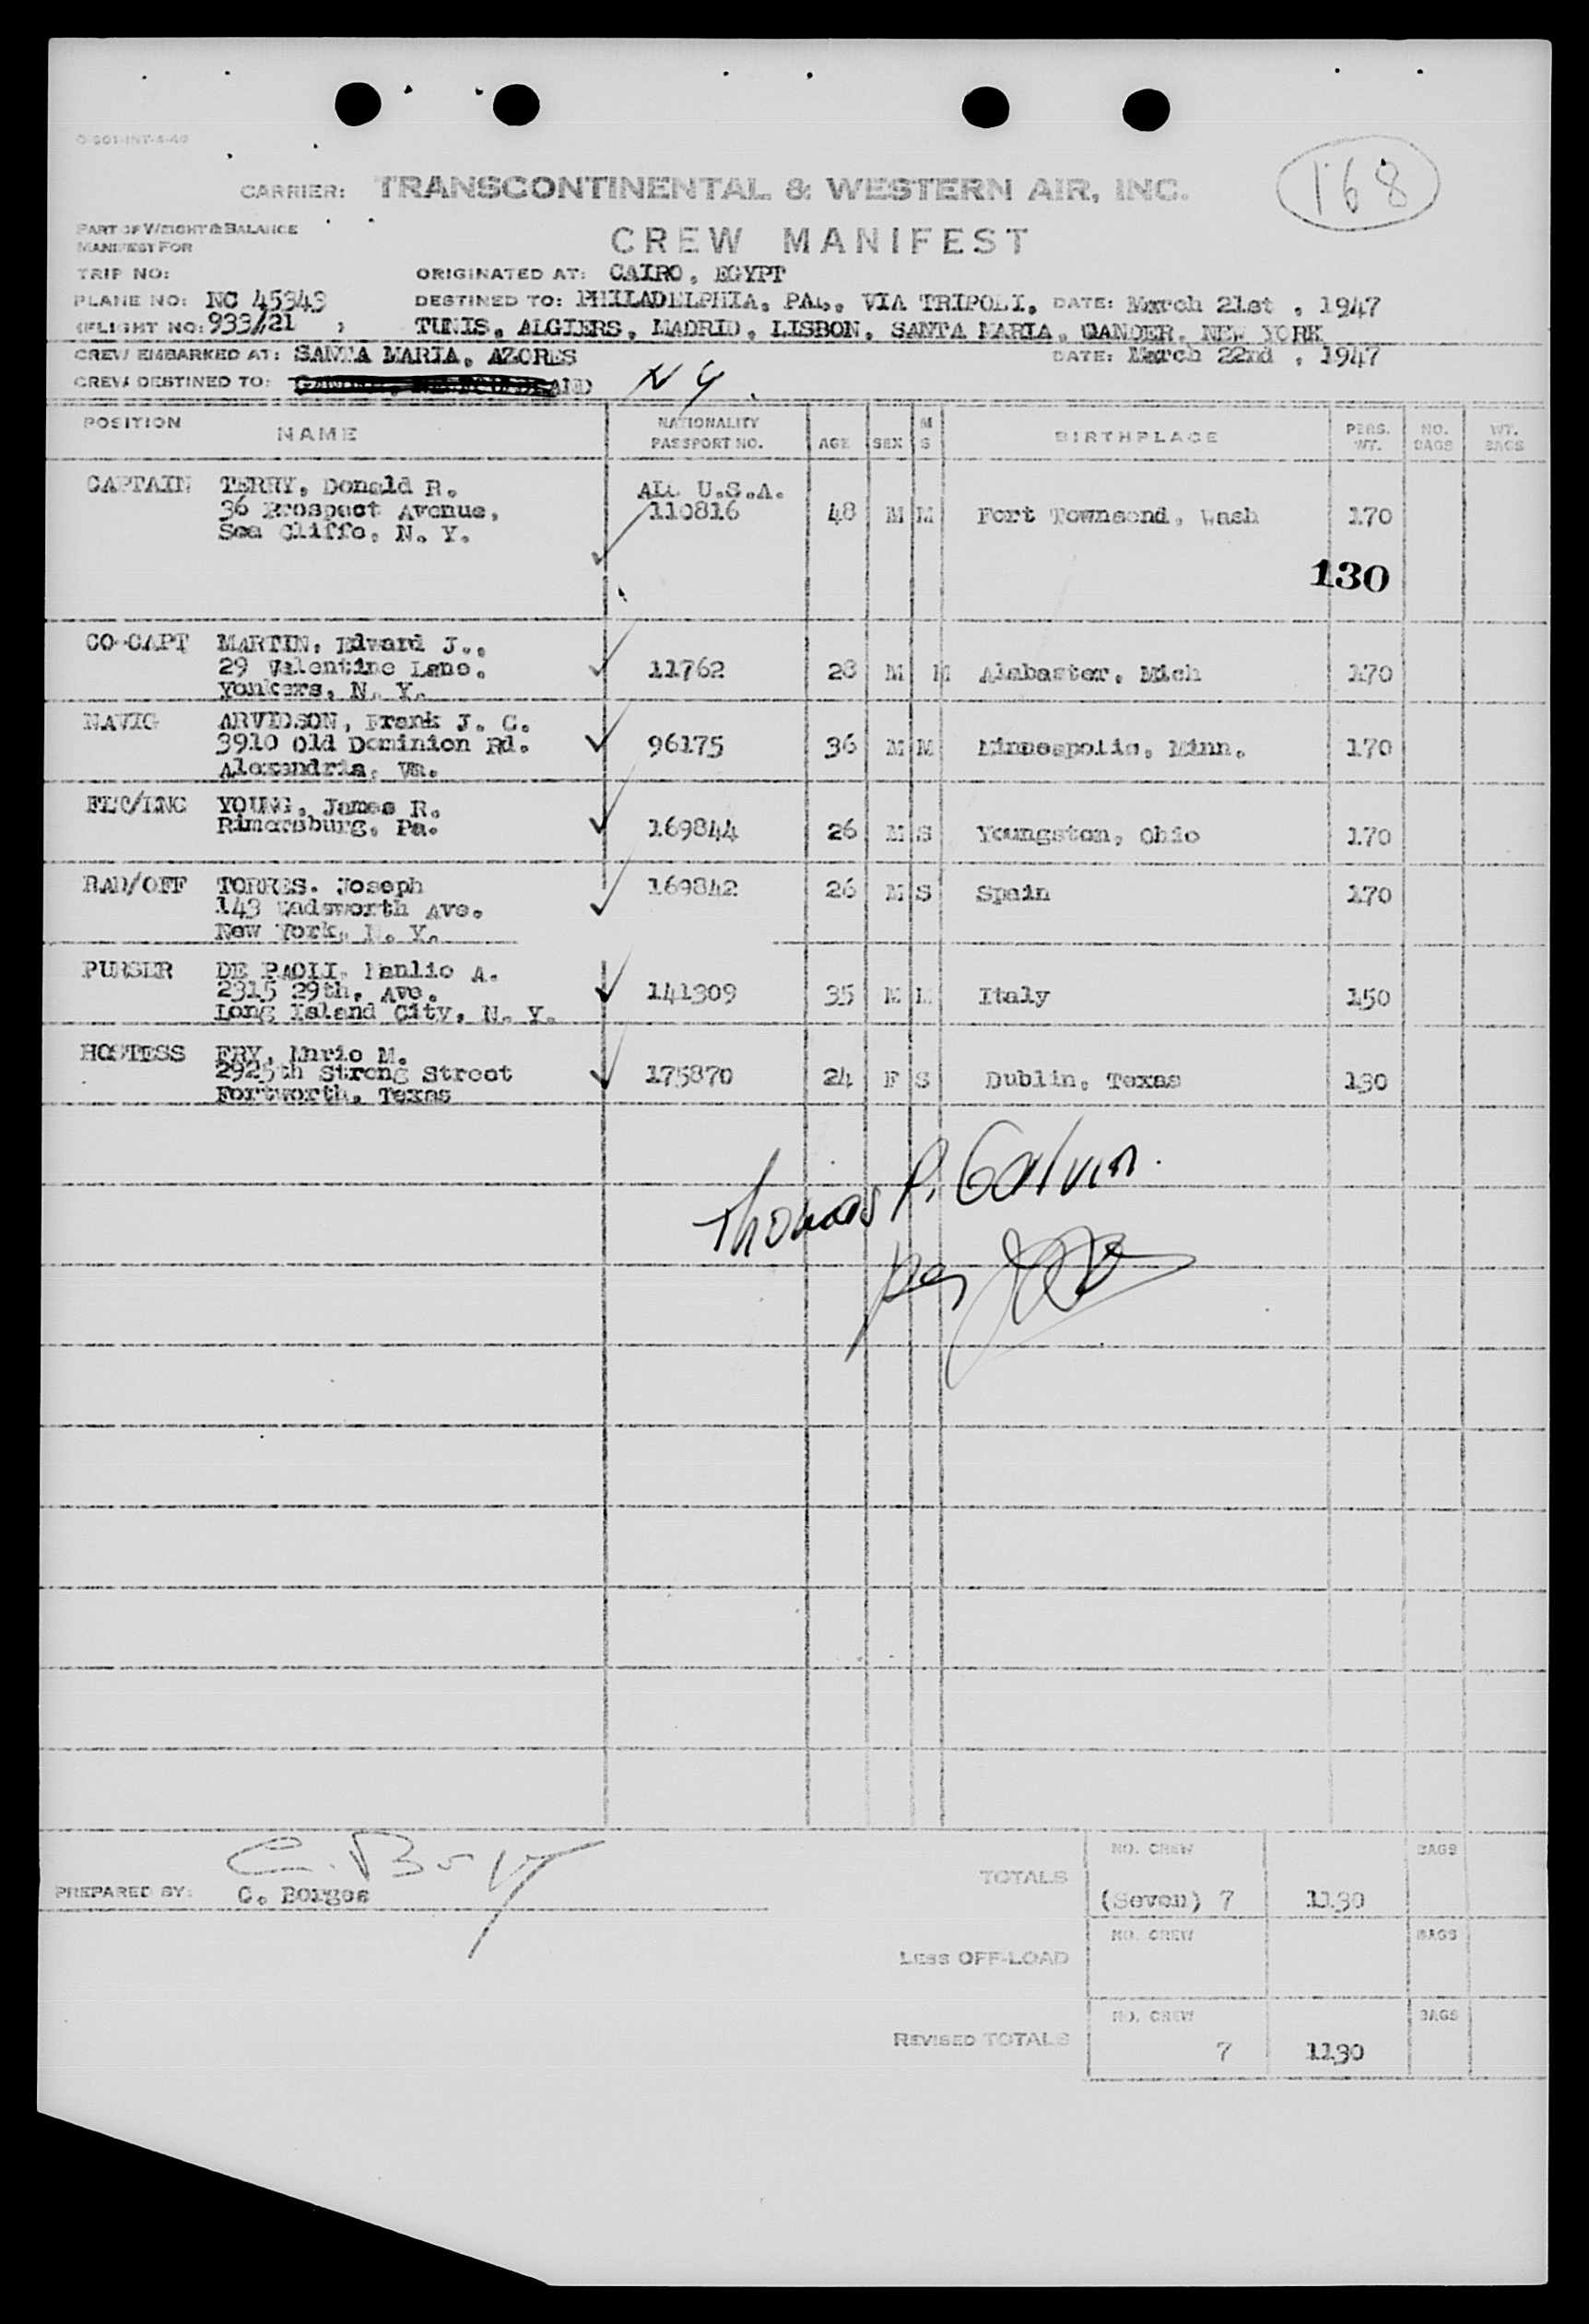 O-601-INT-4-46
168
CARRIER: TRANSCONTINENTAL & WESTERN AIR, INC.
PART OF WEIGHT & BALANCE
MANIFEST FOR
CREW MANIFEST
TRIP NO: ORIGINATED AT: CAIRO, EGYPT
PLANE NO: NC 45343 DESTINED TO: PHILADELPHIA, PA., VIA TRIPOLI, DATE: March 21st , 1947
(FLIGHT NO: 933/21 ) TUNIS, ALGIERS, MADRID, LISBON, SANTA MARIA, GANDER, NEW YORK
CREW EMBARKED AT: SANTA MARIA, AZORES DATE: March 22nd , 1947
CREW DESTINED TO: N Y.
POSITION NAME NATIONALITY PASSPORT NO. AGE SEX M S BIRTHPLACE PERS. WT. NO. BAGS WT. BAGS
CAPTAIN TERRY, Donald R. ALL U.S.A.
36 Prospect Avenue, 110816 48 M M Port Townsend, Wash 170
Sea Cliffe, N. Y.
130
CO-CAPT MARTIN, Edward J.,
29 Valentine Lane. 11762 28 M M Alabaster, Mich 170
Yonkers, N. Y.
NAVIG ARVIDSON, Frank J. C.
3910 Old Dominion Rd. 96175 36 M M Minneapolis, Minn. 170
Alexandria, Va.
FLT/ENG YOUNG, James R.
Rimersburg, Pa. 169844 26 M S Youngston, Ohio 170
RAD/OFF TORRES. Joseph 169842 26 M S Spain 170
143 Wadsworth Ave.
New York, N. Y.
PURSER DE PAOLI, Manlio A.
2315 29th, Ave. 141309 35 M M Italy 150
Long Island City, N. Y.
HOSTESS FRY, M.
2925th Strong Street 175870 24 F S Dublin, Texas 130
Fortworth, Texas
Thomas P. Galvin.
NO. CREW BAGS
TOTALS
PREPARED BY: C. Borges (Seven) 7 1130
NO. CREW BAGS
LESS OFF-LOAD
NO. CREW BAGS
REVISED TOTALS 7 1130